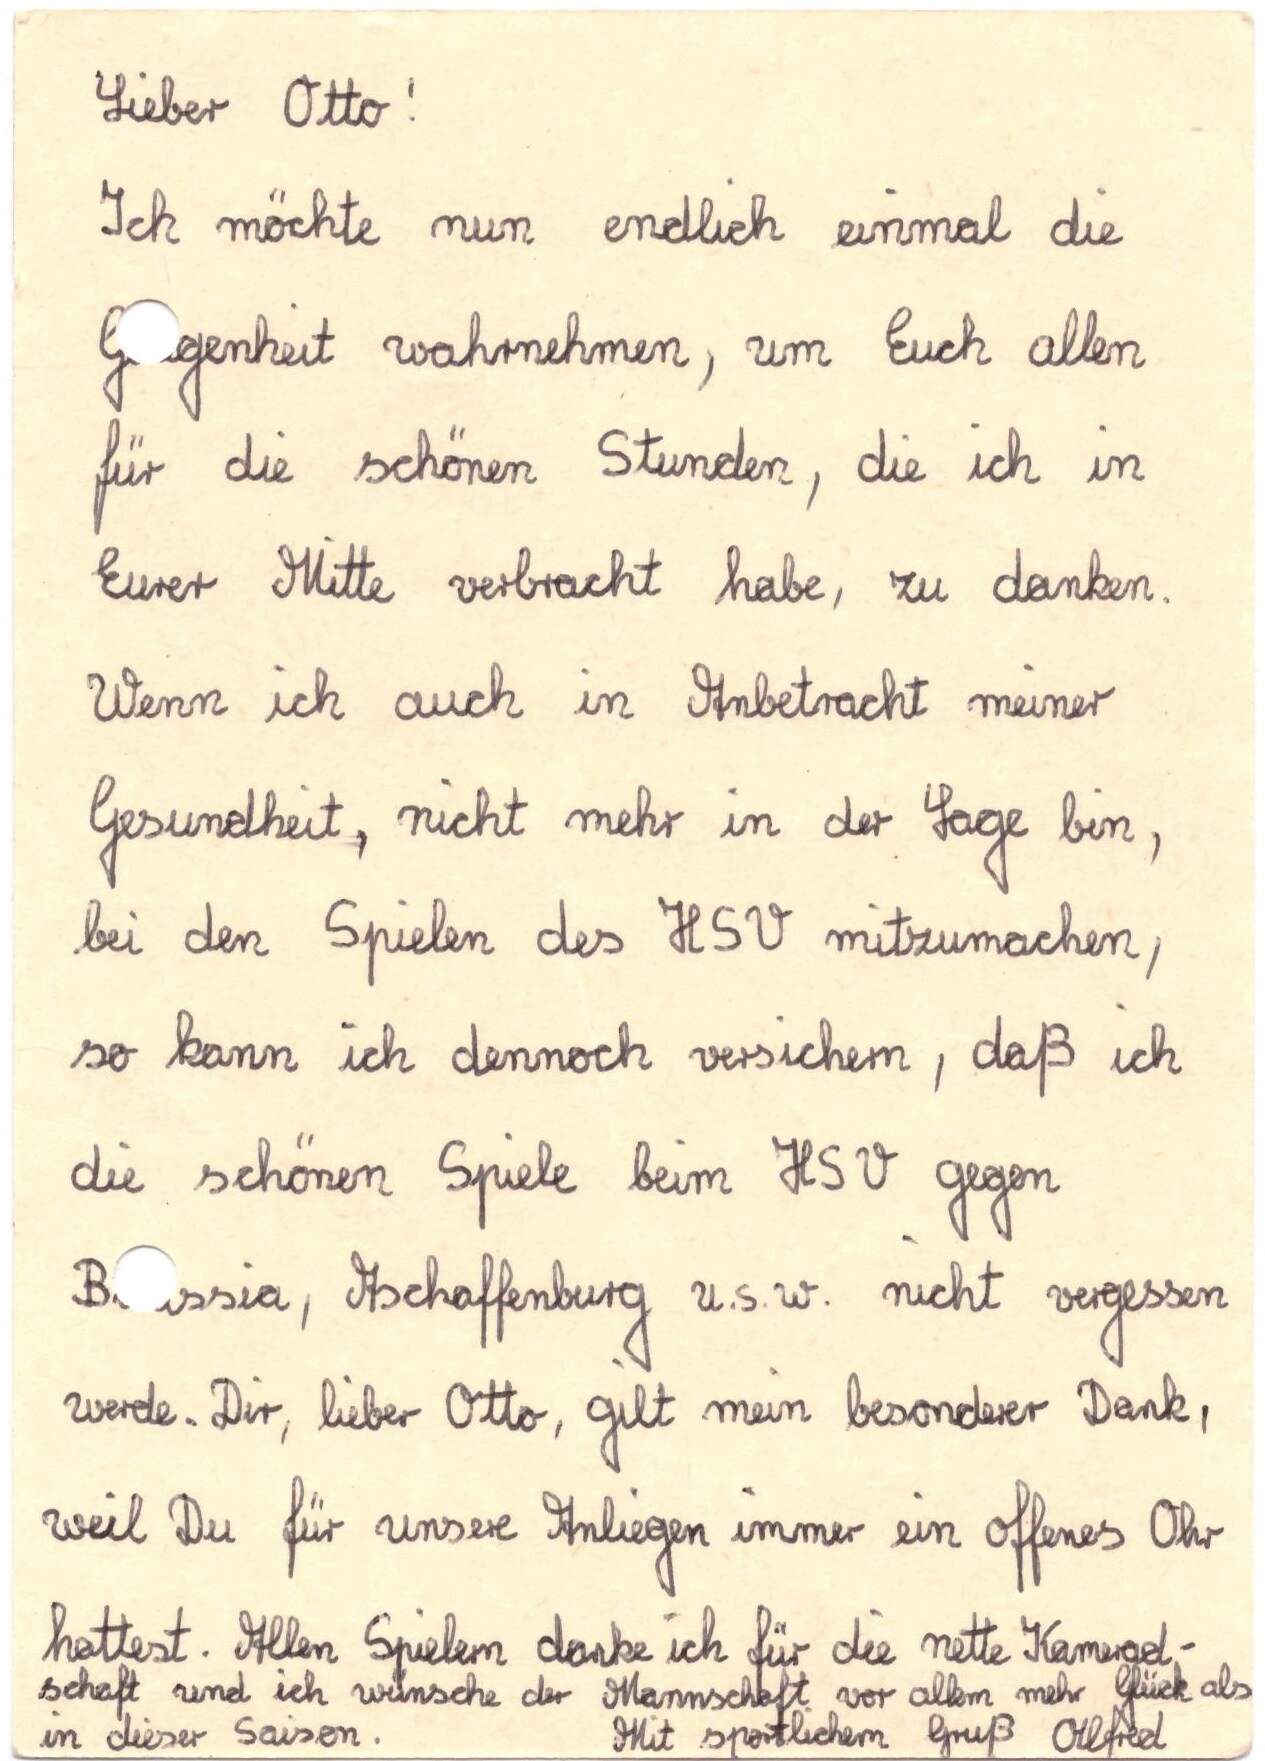 Lieber Otto!
Ich möchte nun endlich einmal die
wahrnehmen, um Euch allen
für die schönen Stunden, die ich in
Eurer Mitte verbracht habe, zu danken.
Wenn ich auch in Anbetracht meiner
Gesundheit, nicht mehr in der Lage bin,
bei den Spielen des HSV mitzumachen,
so kann ich dennoch versichern, daß ich
die schönen Spiele beim HSV gegen
Aschaffenburg u.s.w. nicht vergessen
werde. Dir, lieber Otto, gilt mein besonderer Dank,
weil Du für unsere Anliegen immer ein offenes Ohr
hattest. Allen Spielern danke ich für die nette Kamerad-
schaft und ich wünsche der Mannschaft vor allem mehr Glück als
in dieser Saison. Mit sportlichem Gruß Alfred